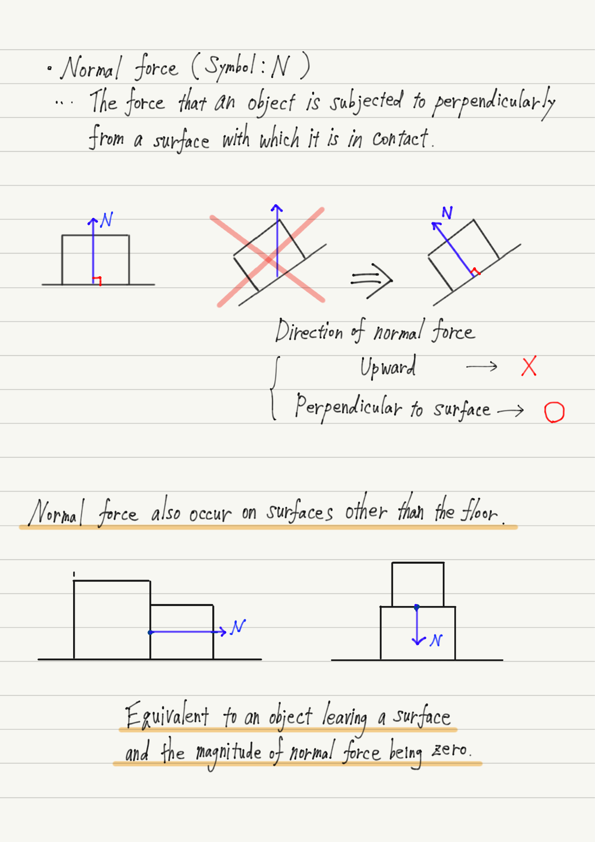 • Normal force (Symbol: N)
… The force that an object is subjected to perpendicularly
from a surface with which it is in contact.
N
N
Direction of normal force
Upward → X
Perpendicular to surface → O
Normal force also occur on surfaces other than the floor.
N
N
Equivalent to an object leaving a surface
and the magnitude of normal force being zero.